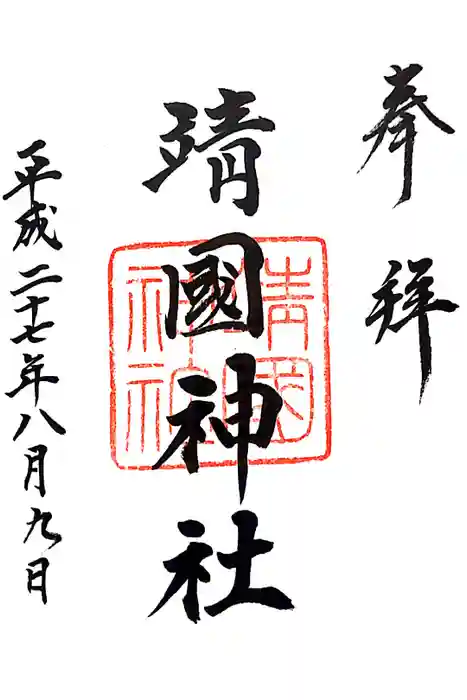 奉拝
靖國神社
靖國
神社
平成二十七年八月九日